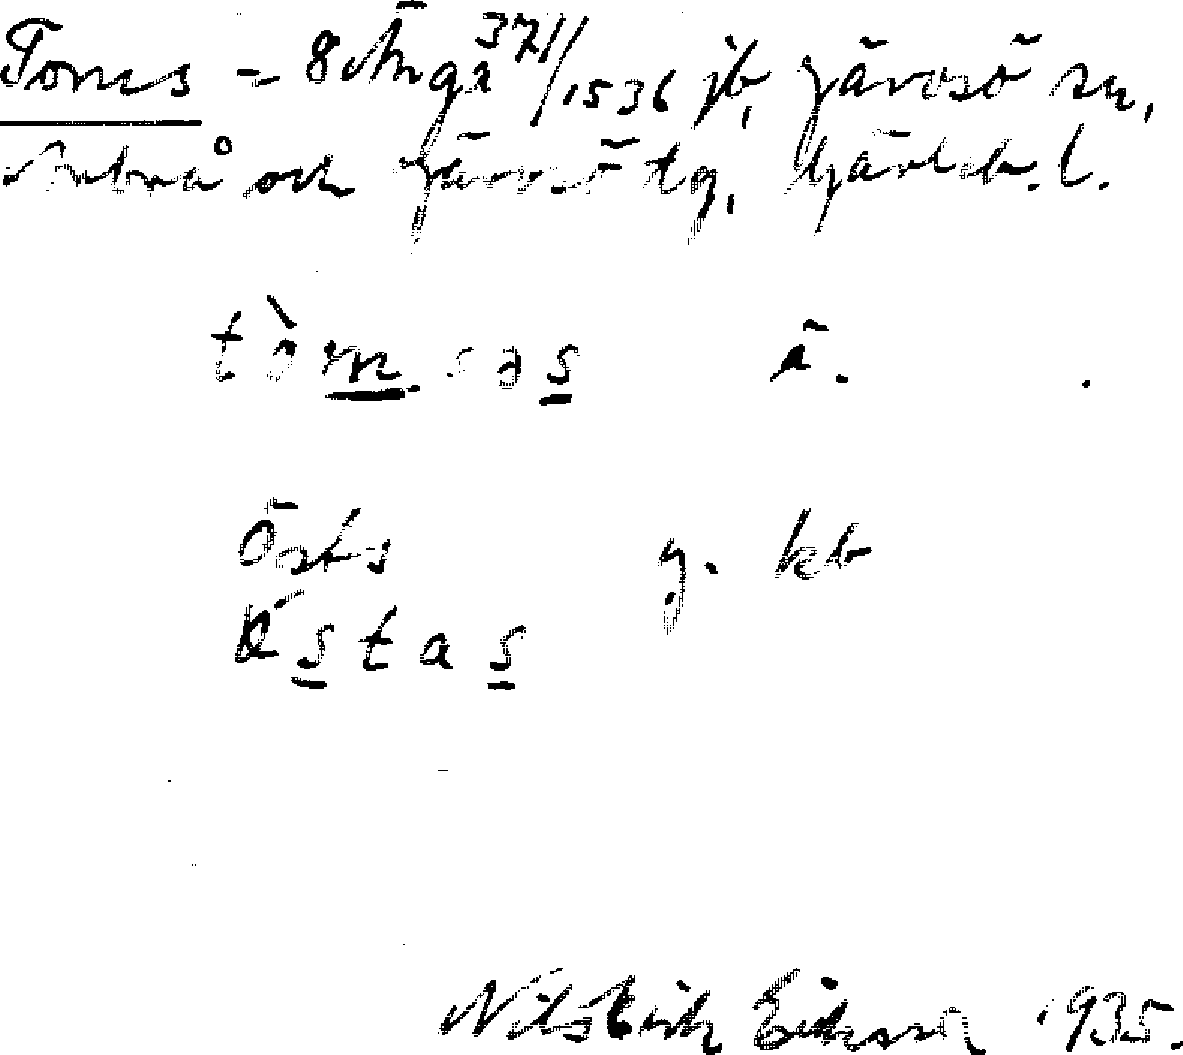 Toms = 8 Ängra 37 1/1536 jb, Järvsö sn,
Arbrå och Järvsö tg, Gävleb. l.
tòm səs ä.
Östs g. kb
Östas
Nils Erik Eriksson 1935.